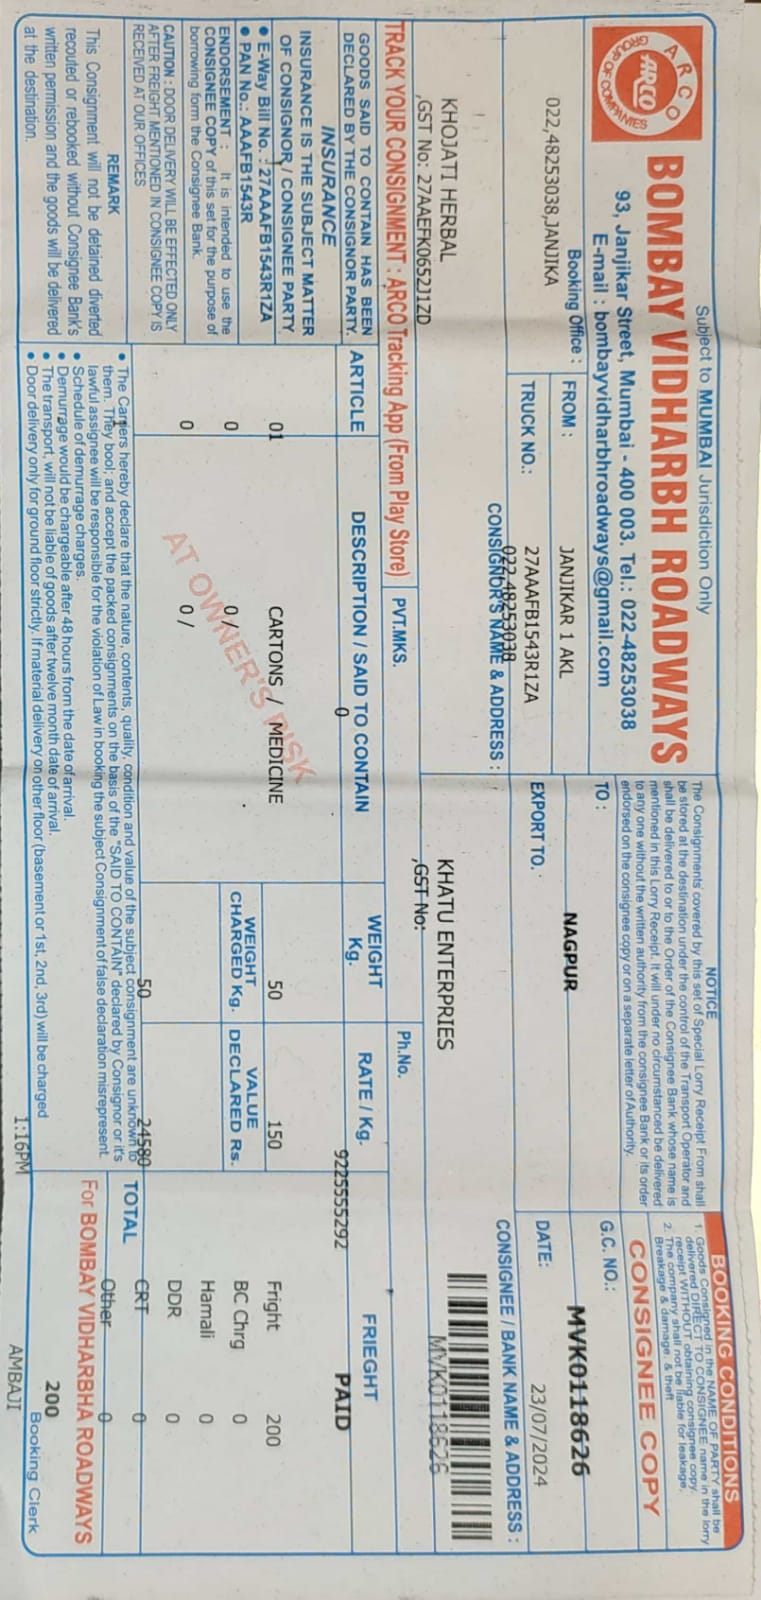 Subject to MUMBAI Jurisdiction Only
ARCO
ARCO
GROUP OF COMPANIES
BOMBAY VIDHARBH ROADWAYS
93, Janjikar Street, Mumbai - 400 003. Tel.: 022-48253038
E-mail : bombayvidharbhroadways@gmail.com
NOTICE
The Consignments covered by this set of Special Lorry Receipt From shall
be stored at the destination under the control of the Transport Operator and
shall be delivered to or to the Order of the Consignee Bank whose name is
mentioned in this Lorry Receipt. It will under no circumstanced be delivered
to any one without the written authority from the consignee Bank or its order
endorsed on the consignee copy or on a separate letter of Authority.
BOOKING CONDITIONS
1. Goods Consigned in the NAME OF PARTY shall be
delivered DIRECT TO CONSIGNEE name in the lorry
receipt WITHOUT obtaining consignee copy.
2. The company shall not be liable for leakage,
Breakage & damage. & theft
CONSIGNEE COPY
Booking Office :
022,48253038,JANJIKA
FROM :
JANJIKAR 1 AKL
TO :
NAGPUR
G.C. NO.:
MVK0118626
TRUCK NO.:
27AAAFB1543R1ZA
EXPORT TO.
DATE:
23/07/2024
022-48253038
CONSIGNOR'S NAME & ADDRESS :
CONSIGNEE / BANK NAME & ADDRESS :
KHOJATI HERBAL
,GST No: 27AAEFK0652J1ZD
KHATU ENTERPRIES
,GST No:
MVK0118626
TRACK YOUR CONSIGNMENT : ARCO Tracking App (From Play Store)
PVT.MKS.
Ph.No.
GOODS SAID TO CONTAIN HAS BEEN
DECLARED BY THE CONSIGNOR PARTY.
INSURANCE
INSURANCE IS THE SUBJECT MATTER
OF CONSIGNOR / CONSIGNEE PARTY
• E-Way Bill No. : 27AAAFB1543R1ZA
• PAN No.: AAAFB1543R
ENDORSEMENT : It is intended to use the
CONSIGNEE COPY of this set for the purpose of
borrowing form the Consignee Bank.
CAUTION : DOOR DELIVERY WILL BE EFFECTED ONLY
AFTER FREIGHT MENTIONED IN CONSIGNEE COPY IS
RECEIVED AT OUR OFFICES
REMARK
This Consignment will not be detained diverted
recouted or rebooked without Consignee Bank's
written permission and the goods will be delivered
at the destination.
ARTICLE
DESCRIPTION / SAID TO CONTAIN
0
WEIGHT
Kg.
RATE / Kg.
9225555292
FRIEGHT
PAID
01
CARTONS / MEDICINE
50
150
Fright 200
0
0 /
WEIGHT
CHARGED Kg.
VALUE
DECLARED Rs.
BC Chrg 0
Hamali 0
0
0 /
DDR 0
AT OWNER'S RISK
50
24580
CRT 0
TOTAL
Other 0
200
• The Carriers hereby declare that the nature, contents, quality, condition and value of the subject consignment are unknown to
them. They bool; and accept the packed consignments on the basis of the "SAID TO CONTAIN" declared by Consignor or it's
lawful assignee will be responsible for the violation of Law in booking the subject Consignment of false declaration misrepresent.
• Schedule of demurrage charges.
• Demurrage would be chargeable after 48 hours from the date of arrival.
• The transport, will not be liable of goods after twelve month date of arrival.
• Door delivery only for ground floor strictly. If material delivery on other floor (basement or 1st, 2nd, 3rd) will be charged
For BOMBAY VIDHARBHA ROADWAYS
1:16PM
Booking Clerk
AMBAJI